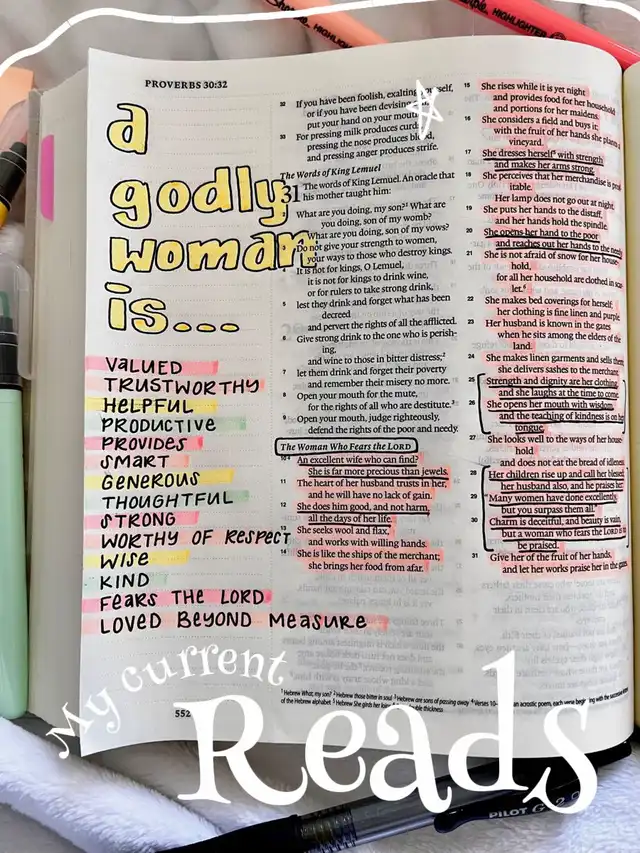 Sharpie. HIGHLIGHTER
Sharpie. HIGHLIGHTER
PROVERBS 30:32
a
godly
woman
is...
VALUED
TRUSTWORTHY
HELPFUL
PRODUCTIVE
PROVIDES
SMART
GENEROUS
THOUGHTFUL
STRONG
WORTHY OF RESPECT
WISE
KIND
FEARS THE LORD
LOVED BEYOND MEASURE
32 If you have been foolish, exalting yourself,
or if you have been devising
put your hand on your mouth.
33 For pressing milk produces curds,
pressing the nose produces
and pressing anger produces strife.
The Words of King Lemuel
31 The words of King Lemuel. An oracle that
his mother taught him:
What are you doing, my son?¹ What are
you doing, son of my womb?
What are you doing, son of my vows?
Do not give your strength to women,
your ways to those who destroy kings.
4 It is not for kings, O Lemuel,
it is not for kings to drink wine,
or for rulers to take strong drink,
5 lest they drink and forget what has been
decreed
and pervert the rights of all the afflicted.
6 Give strong drink to the one who is perish-
ing,
and wine to those in bitter distress;²
7 let them drink and forget their poverty
and remember their misery no more.
8 Open your mouth for the mute,
for the rights of all who are destitute.³
9 Open your mouth, judge righteously,
defend the rights of the poor and needy.
The Woman Who Fears the LORD
10 ⁴ An excellent wife who can find?
She is far more precious than jewels.
11 The heart of her husband trusts in her,
and he will have no lack of gain.
12 She does him good, and not harm,
all the days of her life.
13 She seeks wool and flax,
and works with willing hands.
14 She is like the ships of the merchant;
she brings her food from afar.
15 She rises while it is yet night
and provides food for her household
and portions for her maidens.
16 She considers a field and buys it;
with the fruit of her hands she plants a
vineyard.
17 She dresses herself⁵ with strength
and makes her arms strong.
18 She perceives that her merchandise is prof-
itable.
Her lamp does not go out at night.
19 She puts her hands to the distaff,
and her hands hold the spindle.
20 She opens her hand to the poor
and reaches out her hands to the needy.
21 She is not afraid of snow for her house-
hold,
for all her household are clothed in scar-
let.⁶
22 She makes bed coverings for herself;
her clothing is fine linen and purple.
23 Her husband is known in the gates
when he sits among the elders of the
land.
24 She makes linen garments and sells them;
she delivers sashes to the merchant.
25 Strength and dignity are her clothing,
and she laughs at the time to come.
26 She opens her mouth with wisdom,
and the teaching of kindness is on her
tongue.
27 She looks well to the ways of her house-
hold
and does not eat the bread of idleness.
28 Her children rise up and call her blessed;
her husband also, and he praises her:
29 "Many women have done excellently,
but you surpass them all."
30 Charm is deceitful, and beauty is vain,
but a woman who fears the LORD is to
be praised.
31 Give her of the fruit of her hands,
and let her works praise her in the gates.
¹ Hebrew What, my son? ² Hebrew those bitter in soul ³ Hebrew are sons of passing away ⁴ Verses 10– an acrostic poem, each verse beginning with the successive
of the Hebrew alphabet ⁵ Hebrew She girds her double thickness
552
My current
Reads
PILOT G-2